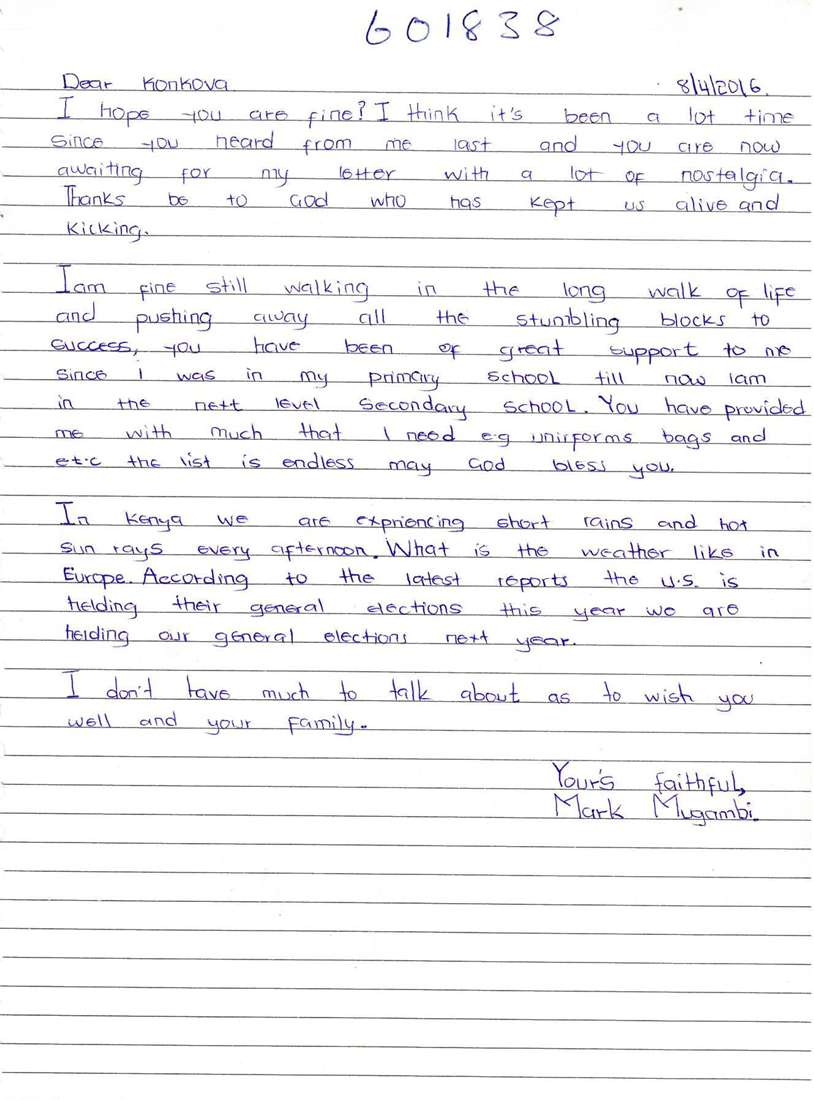 601838
Dear Konkova 8/4/2016.
I hope you are fine? I think it's been a lot time
since you heard from me last and you are now
awaiting for my letter with a lot of nostalgia.
Thanks be to God who has kept us alive and
kicking.
Iam fine still walking in the long walk of life
and pushing away all the stumbling blocks to
success, you have been of great support to me
since i was in my primary school till now iam
in the next level secondary school. You have provided
me with much that i need e.g unirforms bags and
et.c the list is endless may God bless you.
In Kenya we are expriencing short rains and hot
sun rays every afternoon. What is the weather like in
Europe. According to the latest reports the U.S. is
helding their general elections this year we are
helding our general elections next year.
I don't have much to talk about as to wish you
well and your family.
Your's faithful,
Mark Mugambi.